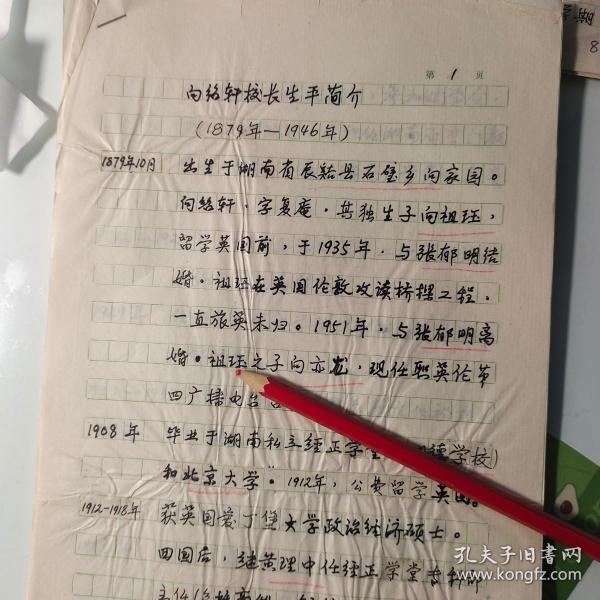 第 1 页
向绍轩校长生平简介
(1879年—1946年)
1879年10月 出生于湖南省辰谿县石壁乡向家园。
向绍轩·字复庵·其独生子向祖珏，
留学英国前，于1935年·与张郁明结
婚。祖珏在英国伦敦攻读桥樑工程，
一直旅英未归。1951年·与张郁明离
婚。祖珏之子向亦龙，现任职英伦第
四广播电台
1908年 毕业于湖南私立经正学堂 德学校)
和北京大学。1912年，公费留学英国。
1912-1918年 获英国爱丁堡大学政治经济硕士。
回国后，继黄理中任经正学堂专科部
主任
孔夫子旧书网
www.kongfz.com
8